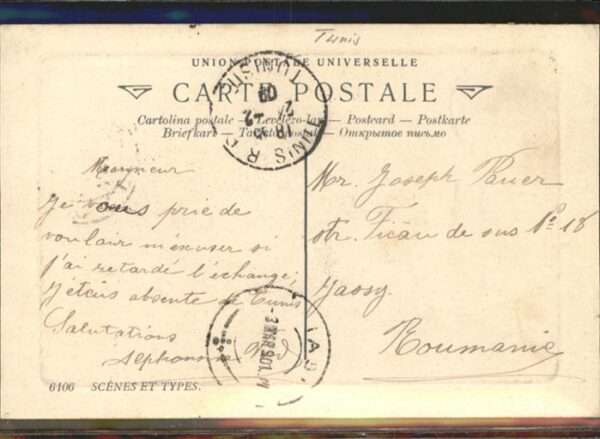 Tunis
UNION POSTALE UNIVERSELLE
CARTE POSTALE
Cartolina postale — Levelezo-lap — Postcard — Postkarte
Briefkart — postal — Открытое письмо
TUNIS R.P.
TUNISIE
Monsieur
Je vous prie de
voulair m'exuser si
j'ai retardé l'échange,
j'étais absente de Tunis
Salutations
Mr. Joseph Pauer
str. Ticău de sus No 18
Jassy.
Roumanie
IAS
6106 SCÈNES ET TYPES.